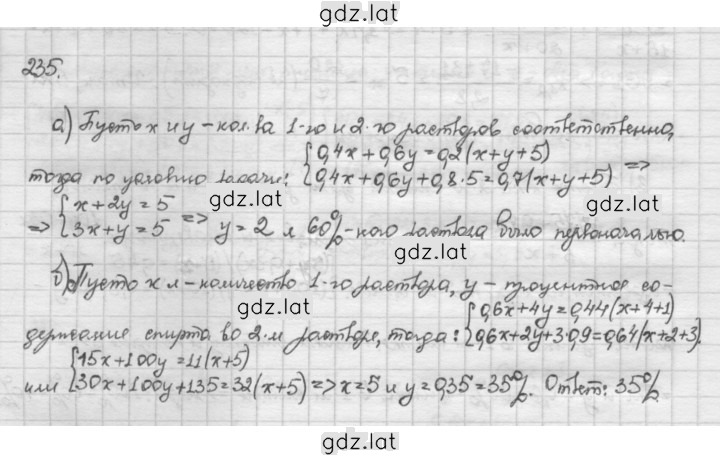 gdz.lat
235.
а) Пусть x и y – кол-ва 1-го и 2-го растворов соответственно,
тогда по условию задачи: {0,4x+0,6y=0,2(x+y+5)
{0,4x+0,6y+0,8·5=0,7(x+y+5) =>
gdz.lat gdz.lat
=> {x+2y=5
{3x+y=5 => y=2 л 60%-ного раствора было первоначально.
gdz.lat
б) Пусть x л – количество 1-го раствора, y – процентное со-
gdz.lat gdz.lat
держание спирта во 2-м растворе, тогда: {0,6x+4y=0,44(x+4+1)
{0,6x+2y+3·0,9=0,64(x+2+3).
или {15x+100y=11(x+5)
{30x+100y+135=32(x+5) => x=5 и y=0,35=35%. Ответ: 35%
gdz.lat